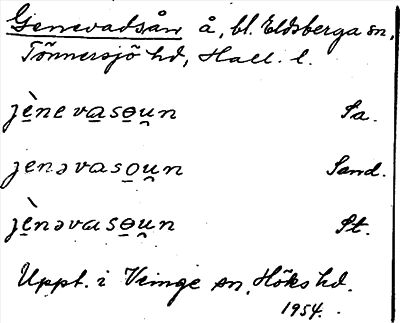 Genevadsån å, bl. Eldsberga sn,
Tönnersjö hd, Hall. l.
jè̱neva̱sɵu̯n Sa.
jenəvaso̱u̯n Sand.
jè̱nəvasɵ̱u̯n St.
Uppt. i Veinge sn, Höks hd.
1954.